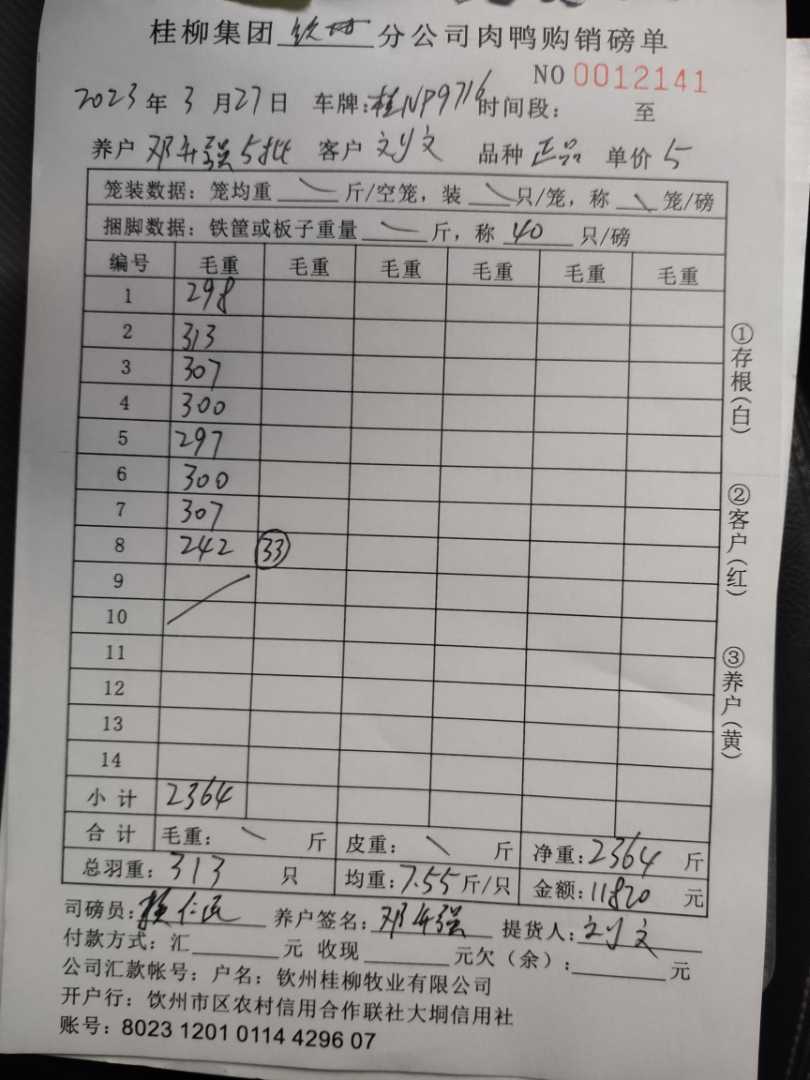 桂柳集团 钦州 分公司肉鸭购销磅单
NO 0012141
2023 年 3 月 27 日 车牌：桂NP9716 时间段： 至
养户 邓升强5批 客户 刘文 品种 正品 单价 5
笼装数据：笼均重 \ 斤/空笼，装 \ 只/笼，称 \ 笼/磅
捆脚数据：铁筐或板子重量 \ 斤，称 40 只/磅
编号 毛重 毛重 毛重 毛重 毛重 毛重
1 298
2 313
3 307
4 300
5 297
6 300
7 307
8 242 33
9
10
11
12
13
14
小计 2364
合计 毛重： \ 斤 皮重： \ 斤 净重：2364 斤
总羽重：313 只 均重：7.55 斤/只 金额：11820 元
司磅员： 养户签名：邓升强 提货人：刘文
付款方式：汇 元 收现 元欠（余）： 元
公司汇款帐号：户名：钦州桂柳牧业有限公司
开户行：饮州市区农村信用合作联社大垌信用社
账号：8023 1201 0114 4296 07
①存根（白）
②客户（红）
③养户（黄）